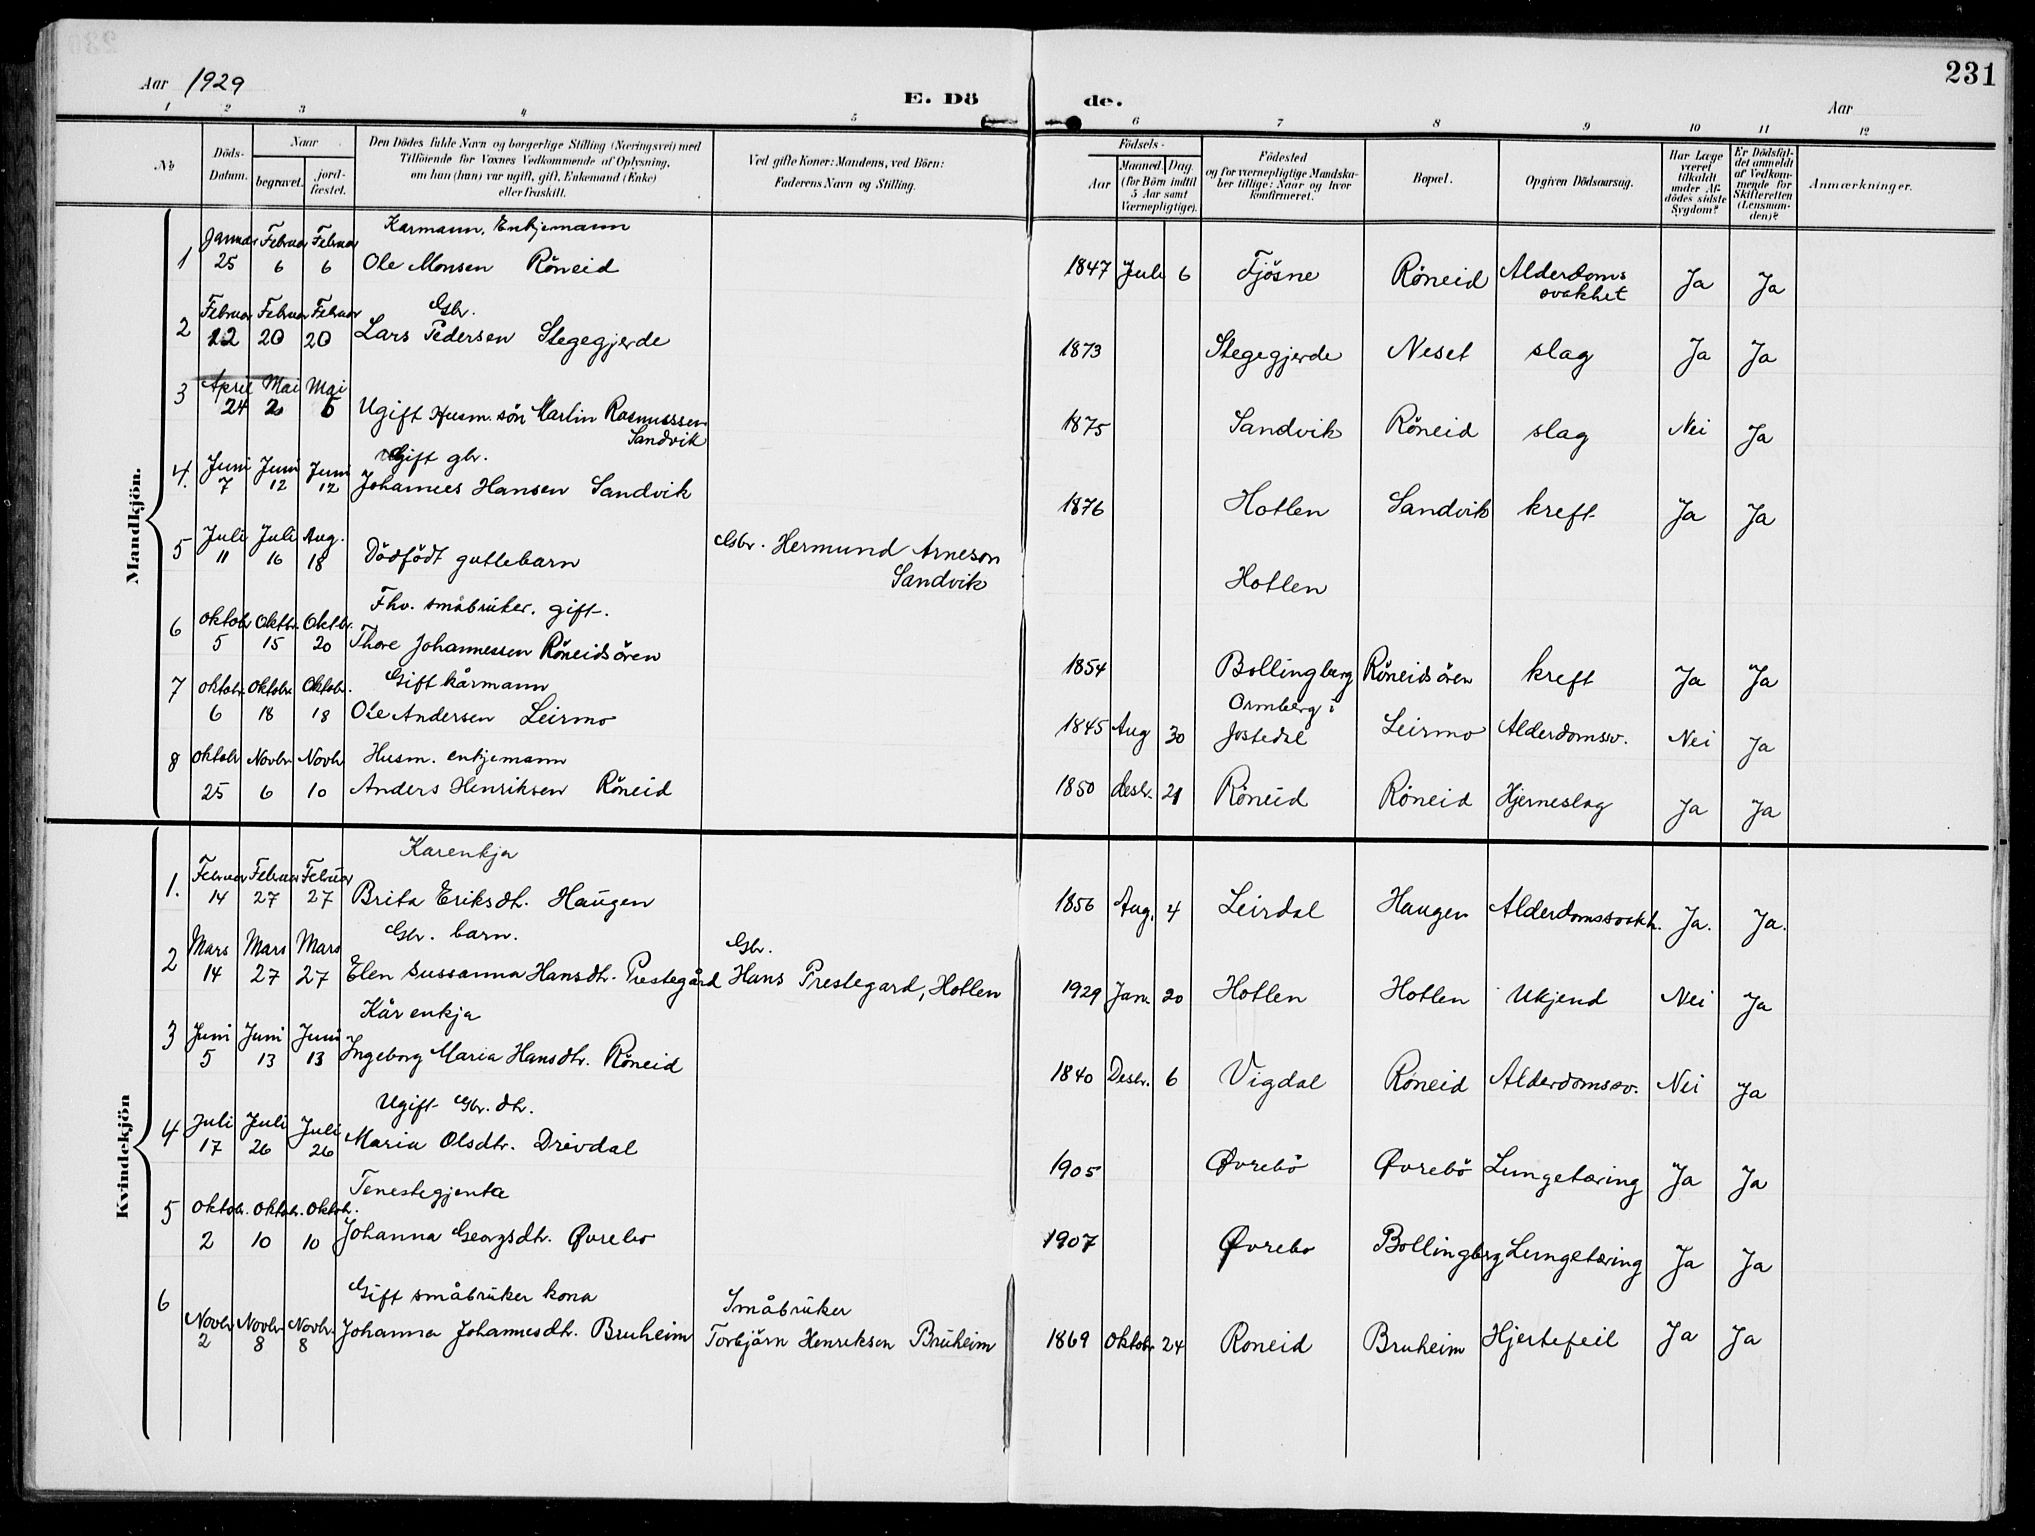 231
Aar 1929
E. Dö de.
Aar
1 2 3 4 5 6 7 8 9 10 11 12
No
Döds-Datum.
Naar
begravet.
jord-fæstet.
Den Dödes fulde Navn og borgerlige Stilling (Næringsvei) med
Tilföiende for Voxnes Vedkommende af Oplysning,
om han (hun) var ugift, gift, Enkemand (Enke)
eller fraskilt.
Ved gifte Koner: Mandens, ved Börn:
Faderens Navn og Stilling.
Födsels-
Aar
Maaned. Dag.
(for Börn indtil
5 Aar samt
Værnepligtige).
Födested
og for værnepligtige Mandska-
ber tillige: Naar og hvor
konfirmeret.
Bopæl.
Opgiven Dödsaarsag.
Har Læge
været
tilkaldt
under Af-
dödes sidste
Sygdom?
Er Dödsfal-
det anmeldt
af Vedkom-
mende for
Skifteretten
(Lensman-
den)?
Anmærkninger.
Mandkjön.
Karmann, Enkjemann
1 Januar 25 Februar 6 Februar 6 Ole Monsen Röneid 1847 Juli 6 Fjösne Röneid Alderdoms svakhet Ja Ja
Gbr.
2 Februar 12 Februar 20 Februar 20 Lars Pedersen Stegegjerde 1873 Stegegjerde Neset slag Ja Ja
3 April 24 Mai 2 Mai 5 Ugift Husm. sön Martin Rasmussen Sandvik 1875 Sandvik Röneid slag Nei Ja
Gift gbr.
4. Juni 7 Juni 12 Juni 12 Johannes Hansen Sandvik 1876 Hotlen Sandvik kreft Ja Ja
5 Juli 11 Juli 16 Aug. 18 Dödfödt guttebarn Gbr. Hermund Arneson Sandvik Hotlen
Fhv. småbruker. gift.
6 oktobr 5 Oktbr. 15 Oktbr. 20 Thore Johannessen Röneidsören 1854 Bollingberg Röneidsören kreft Ja Ja
Gift kårmann
7 oktobr. 6 oktobr. 18 Oktobr. 18 Ole Andersen Leirmo 1845 Aug 30 Ormberg i Jostedal Leirmo Alderdomssv. Nei Ja
Husm. enkjemann
8 oktobr 25 Novbr. 6 Novbr 10 Anders Henriksen Röneid 1850 desbr. 21 Röneid Röneid Hjerneslag Ja Ja
Kvindekjön
Karenkja
1. Februar 14 Februar 27 Februar 27 Brita Eriksdtr. Haugen 1856 Aug. 4 Leirdal Haugen Alderdomssvakh. Ja. Ja.
Gbr. barn.
2 Mars 14 Mars 27 Mars 27 Elen Sussanna Hansdtr. Prestegård Gbr. Hans Prestegard, Hotlen 1929 Jan. 20 Hotlen Hotlen Ukjend Nei Ja
Kår enkja
3 Juni 5 Juni 13 Juni 13 Ingeborg Maria Hansdtr. Röneid 1840 Desbr. 6 Vigdal Röneid Alderdomssv. Nei Ja
Ugift Gbr. dtr.
4 Juli 17 Juli 26 Juli 26 Maria Olsdtr. Drivdal 1905 Øvrebö Øvrebö Lungetæring Ja Ja
Tenestegjenta
5 oktobr. 2 oktobr. 10 oktobr. 10 Johanna Georgsdtr. Øvrebo 1907 Øvrebo Bollingberg Lungetæring Ja Ja
Gift småbruker kona
6 Novbr 2 Novbr 8 Novbr. 8 Johanna Johannesdtr. Bruheim Småbruker Torbjörn Henriksen Bruheim 1869 Oktobr 24 Roneid Bruheim Hjertefeil Ja Ja